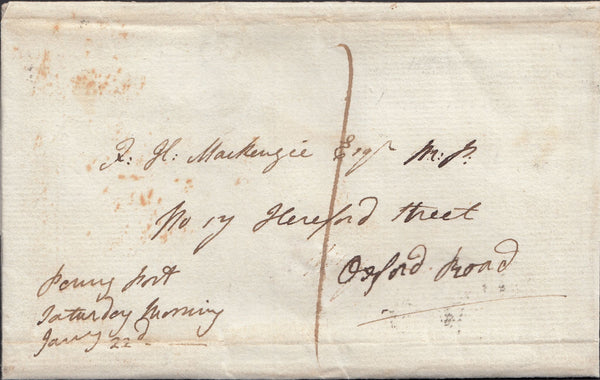 F: H: Mackenzie Esqr M: P.
No 17 Hereford Street
Oxford Road
Penny Post
Saturday Morning
Jany 22d